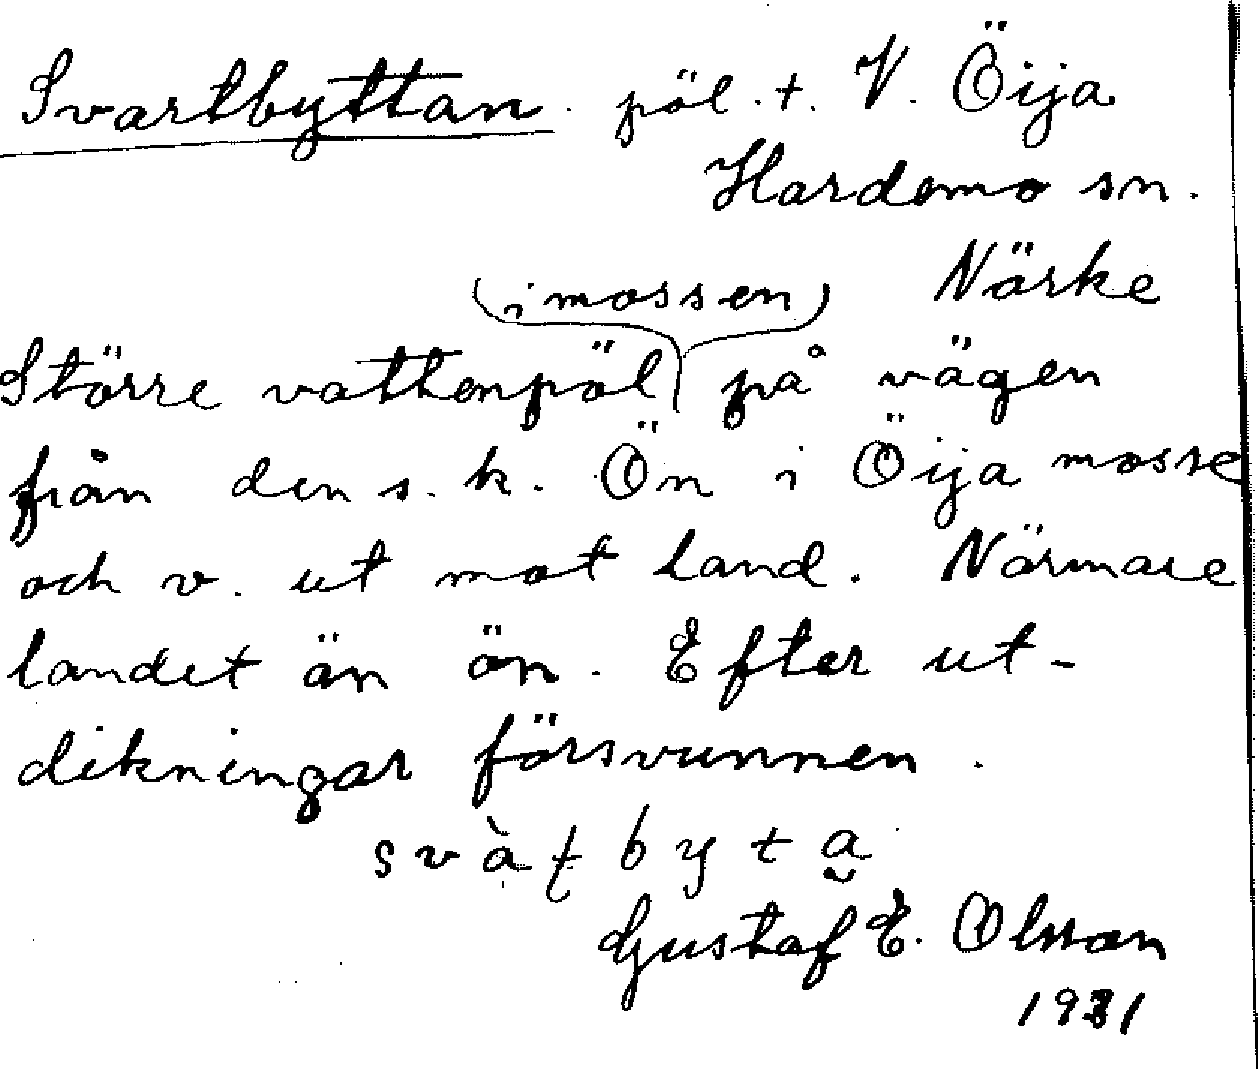 Svartbyttan. pöl. t. V. Öija
Hardemo sn.
Närke
(i mossen)
Större vattenpöl på vägen
från den s. k. Ön i Öija mosse
och v. ut mot land. Närmare
landet än ön. Efter ut-
dikningar försvunnen.
svàʈbyta
Gustaf E. Olsson
1931